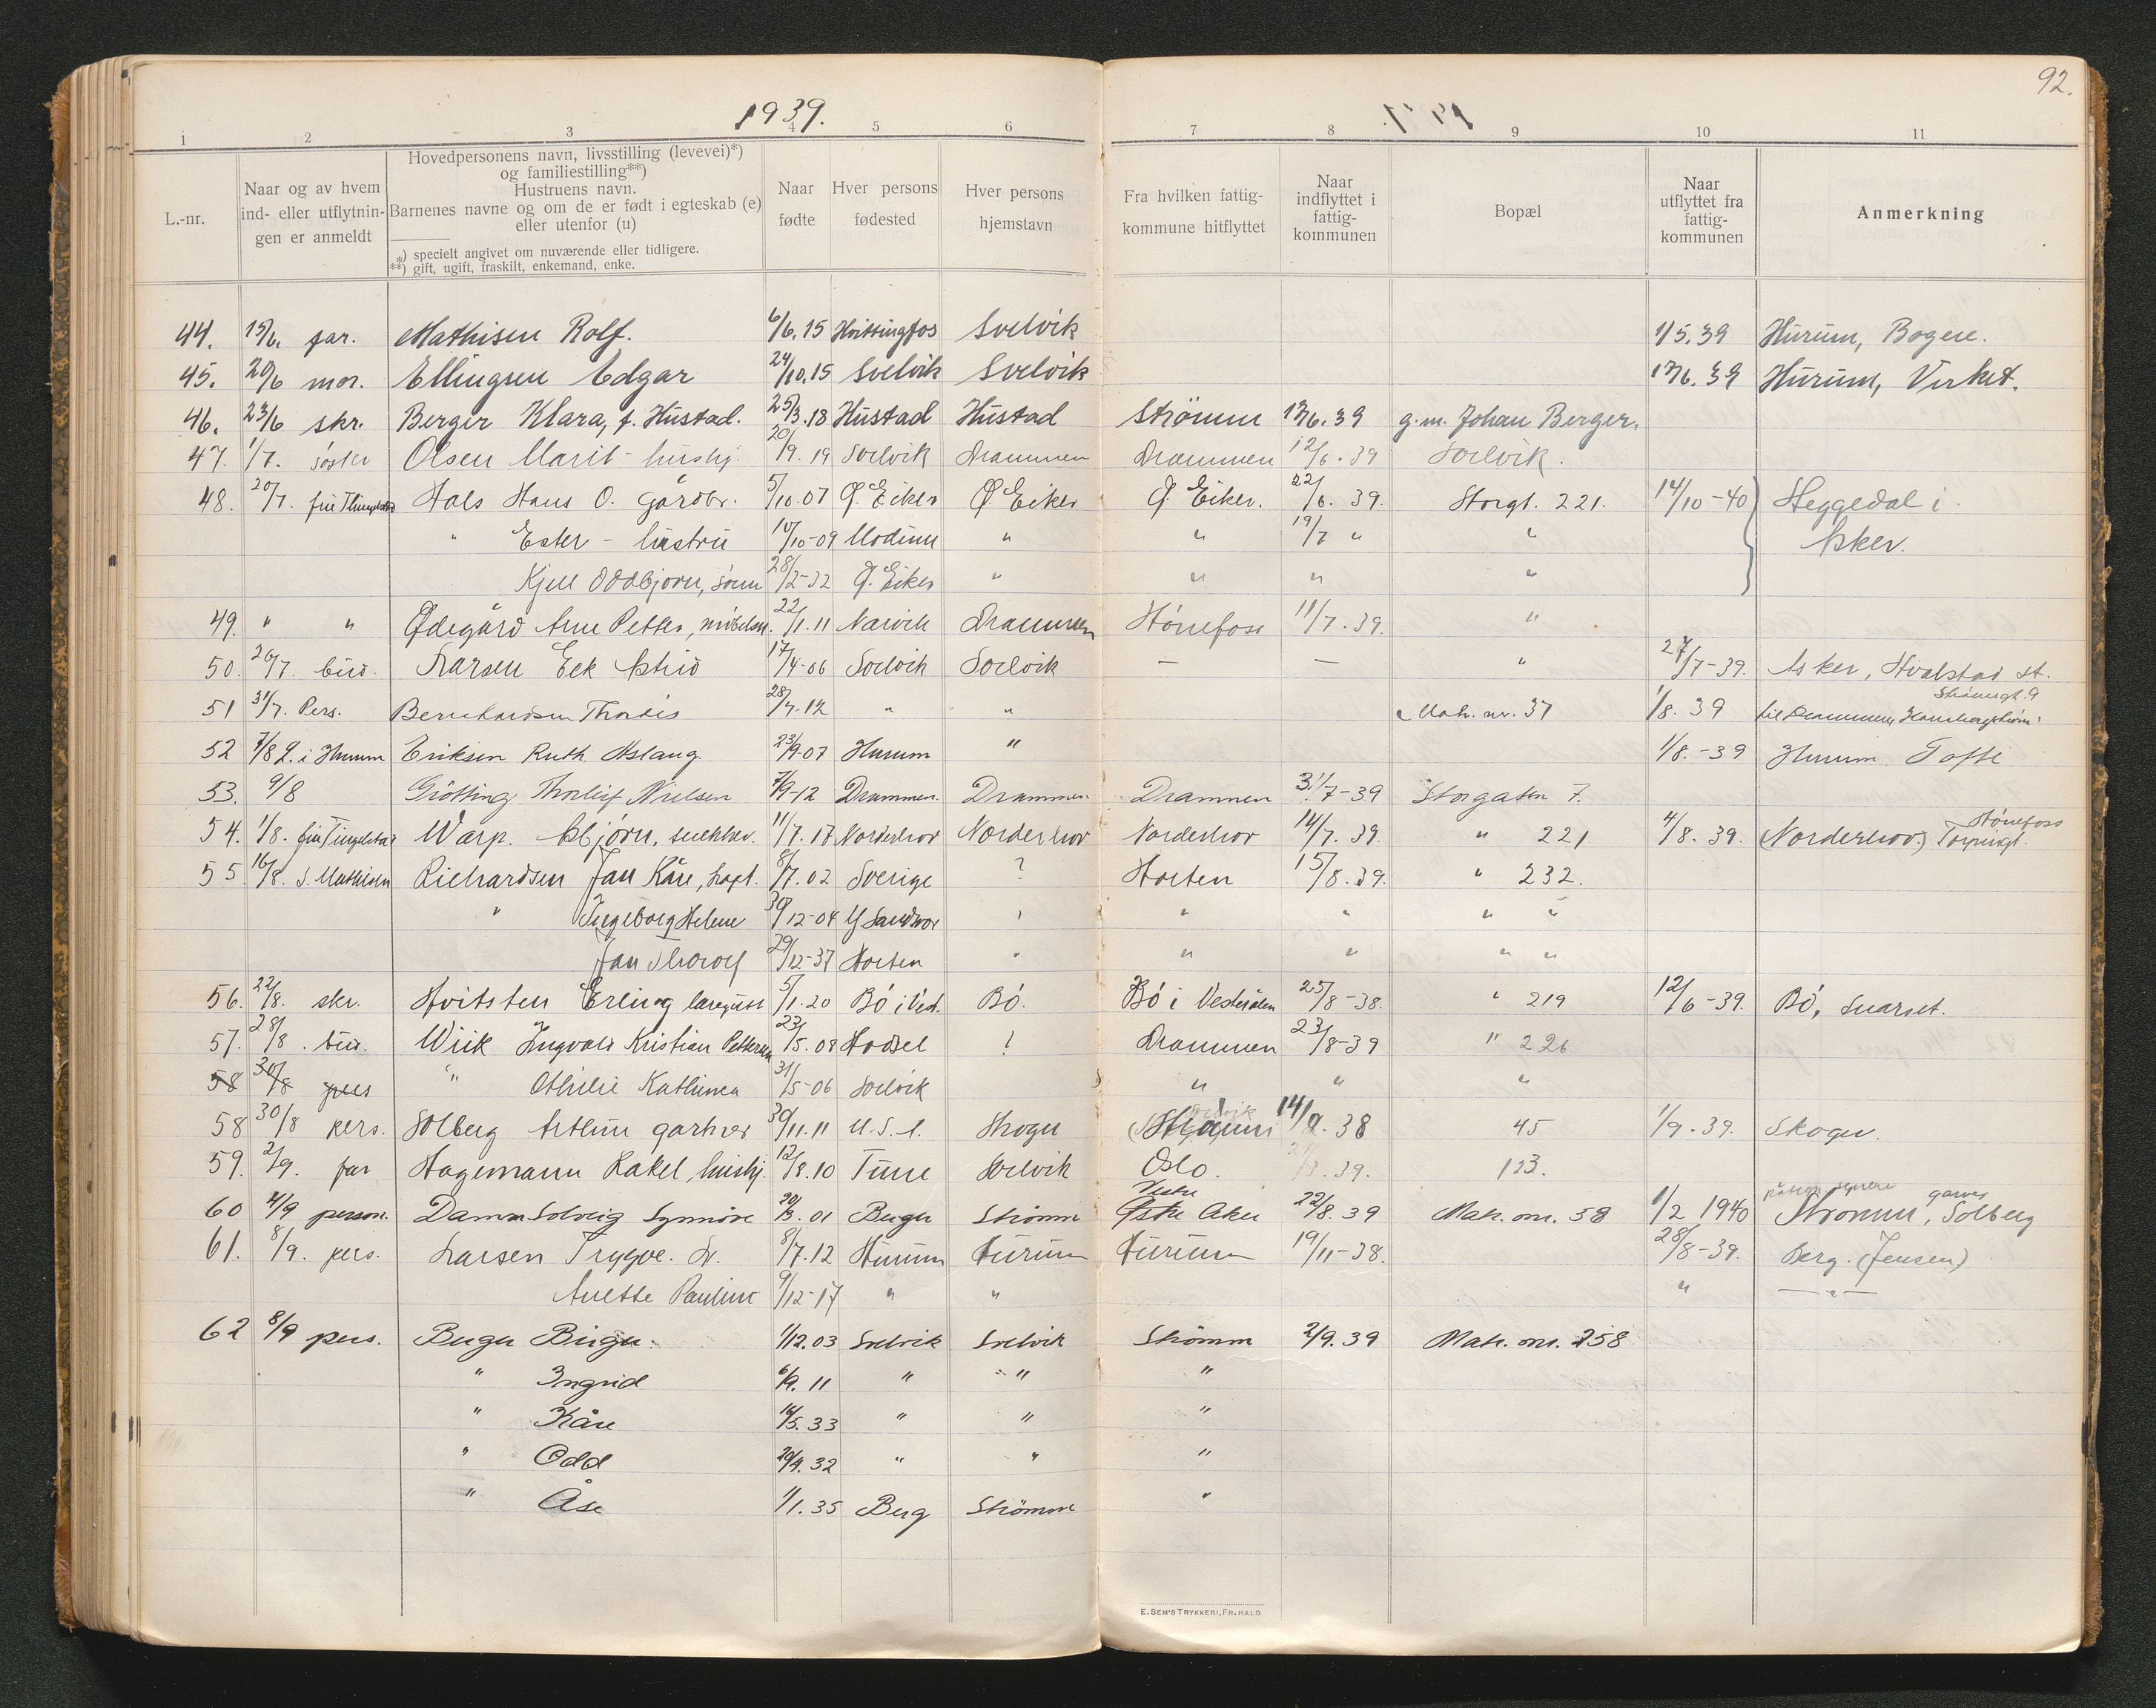 92.
1939.
1 2 3 4 5 6 7 8 9 10 11
L.-nr.
Naar og av hvem
ind- eller utflytnin-
gen er anmeldt
Hovedpersonens navn, livsstilling (levevei)*)
og familiestilling**)
Hustruens navn.
Barnenes navne og om de er født i egteskab (e)
eller utenfor (u)
*) specielt angivet om nuværende eller tidligere.
**) gift, ugift, fraskilt, enkemand, enke.
Naar
fødte
Hver persons
fødested
Hver persons
hjemstavn
Fra hvilken fattig-
kommune hitflyttet
Naar
indflyttet i
fattig-
kommunen
Bopæl
Naar
utflyttet fra
fattig-
kommunen
Anmerkning
44. 15/6. far. Mathisen Rolf. 6/6.15 Hvittingfos Svelvik 1/5.39 Hurum, Bogere.
45. 20/6 mor. Ellingsen Edgar 24/10.15 Svelvik Svelvik 17/6.39 Hurum, Virket.
46. 23/6 skr. Berger Klara, f. Hustad. 25/3.18 Hustad Hustad Strömm 17/6.39 g.m. Johan Berger.
47. 1/7. søster Olsen Marit - hushj. 20/9.19 Svelvik Drammen Drammen 12/6.39 Svelvik.
48. 20/7. Hals Hans O. gårdbr. 5/10.07 Ø. Eiker Ø. Eiker Ø. Eiker. 22/6.39. Storgt. 221. 14/10-40 Heggedal i
" Ester - hustru 10/10-09 Modum " " 19/7 " " Asker.
Kjell Oddbjørn, sønn 28/2-32 Ø. Eiker " " " "
49. " " Ødegård Arne Petter, 22/1.11 Narvik Drammen Hønefoss 11/7.39. "
50. 26/7. bud. Larsen Eek Astrid 17/4-06 Svelvik Svelvik — — " 27/7-39. Asker, Hvalstad st.
51 31/7. Pers. Bernhardsen Thordis 28/7.12 " " Matr. nr. 37 1/8.39 Strömsgt. 9
til Drammen
52 7/8 L. i Hurum Eriksen Ruth Aslaug 23/9-07 Hurum " 1/8.-39 Hurum Tofte
53. 9/8 Grötting Thorleif Nielsen 7/9-12 Drammen Drammen Drammen 31/7-39 Storgaten 7.
54. 1/8. Warp. Asbjørn, snekker. 11/7.17 Norderhov Norderhov Norderhov 14/7.39. " 221 4/8.39. (Norderhov) Hønefoss
55 16/8. S. Mathisen Richardsen Jan Kåre, kapt. 8/7.02 Sverige ? Horten 15/8.39. " 232.
" Ingeborg Helene 30/12-04 " " " "
Jan Thorolf 29/12-37 Horten " " " " "
56. 22/8. skr. Hvitsten Erling 5/1.20 Bö i Vest. Bö. Bö i Vesterålen 25/8-38. " 219 12/6-39. Bö,
57. 28/8. bud. Wiik Ingvald Kristian Pettersen 23/5.08 Hadsel ! Drammen 23/8-39 " 226
58 30/8 pers " Othilie Kathinca 31/5-06 Svelvik " " "
58 30/8 pers. Solberg Arthur gartner 30/11.11 U.S.A. Skoger 14/9.38 45 1/9.39. Skoger.
59. 2/9. far Hagemann Rakel, hushj. 12/8.10 Tune Svelvik Oslo. 39. 123.
60 4/9 person. Damm Solveig Synnöve 20/3.01 Berger Strömm Vestre
Østre Aker 22/8.39 Matr. nr. 58 1/2 1940 Strömm, Solberg
61. 8/9. pers. Larsen Trygve. 8/7.12 Hurum Hurum Hurum 19/11-38. 28/8-39. Berg. (Jensen)
Anette Pauline 9/12-17 " " " — " —
62 8/9 pers. Berger Birger. 1/12.03 Svelvik Svelvik Strömm 2/9.39 Matr. nr. 258
" Ingrid 6/9.11 " " "
" Kåre 14/5.33 " " "
" Odd 20/4.32 " " "
" Åse 1/1.35 Berg Strömm "
E. SEM'S TRYKKERI, FR.HALD